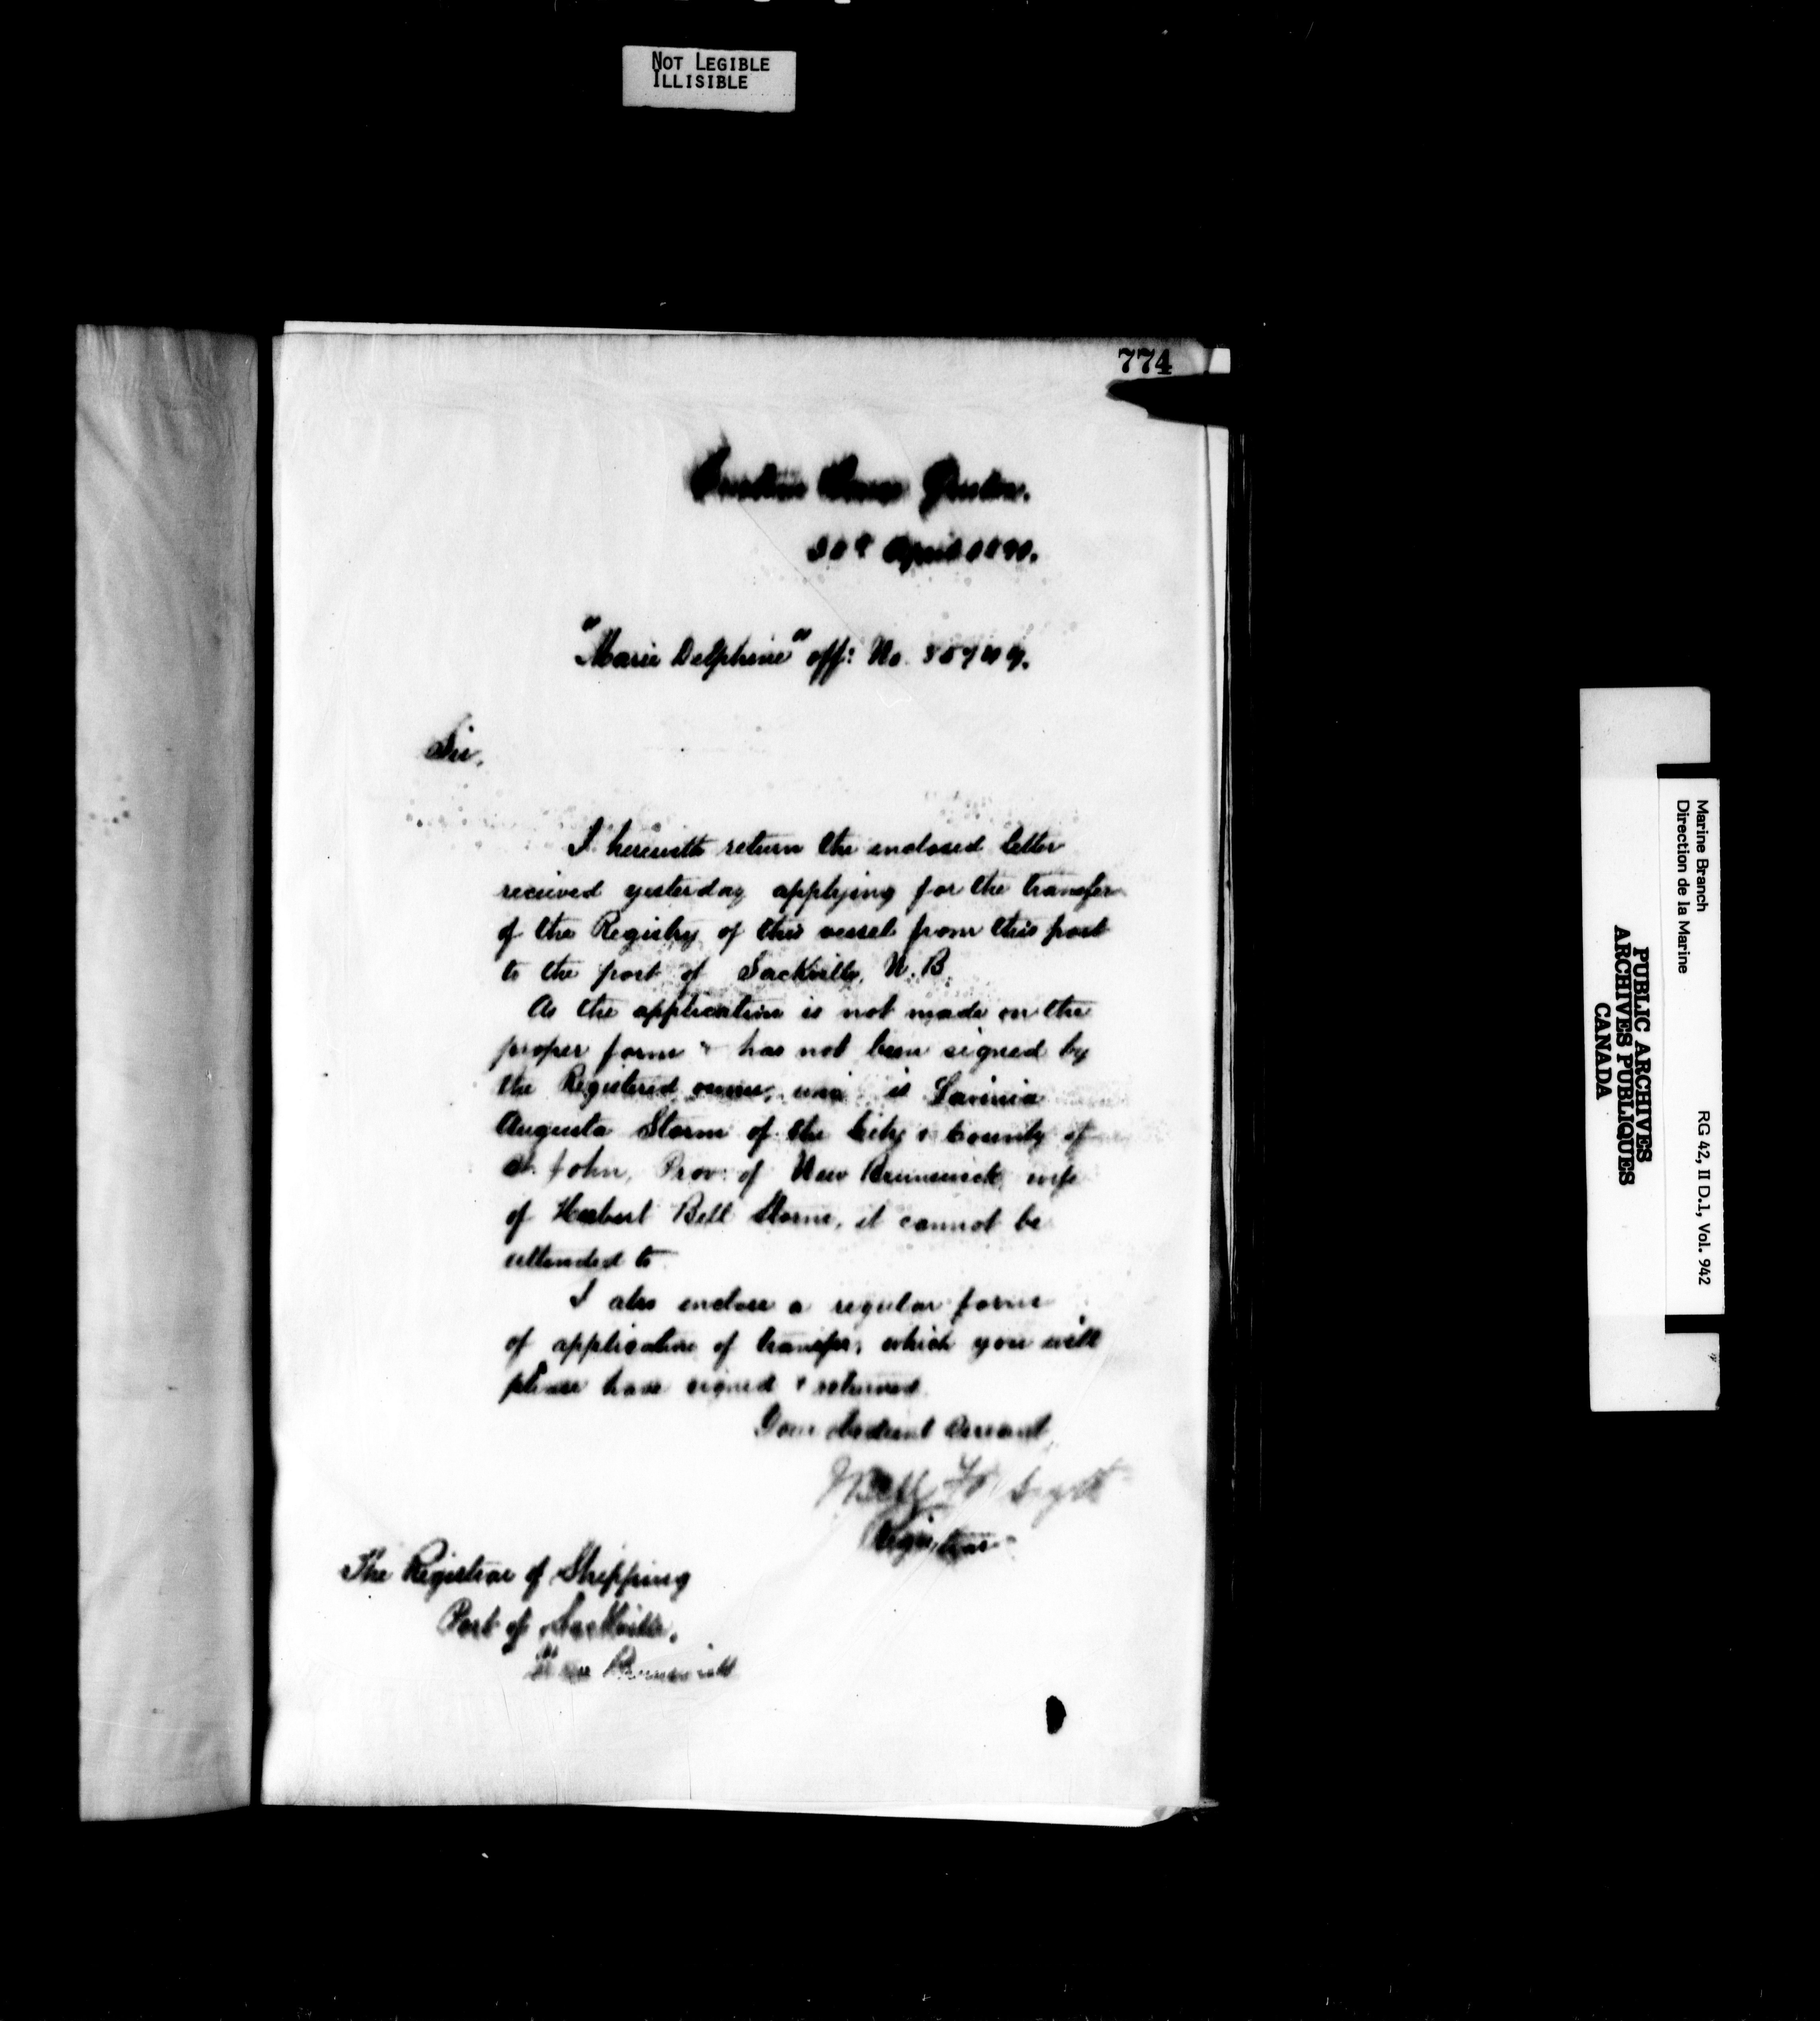 NOT LEGIBLE
ILLISIBLE
774
Custom House Quebec.
30th April 1890.
"Marie Delphine" off: No.
Sir,
I herewith return the enclosed letter
recieved yesterday applying for the transfer
of the Registry of this vessel from this port
to the port of Sackville, N.B.
As the application is not made on the
proper form & has not been signed by
the Registered owner, who is Lavinia
Augusta Storm of the City & County of
St. John, Prov: of New Brunswick wife
of Herbert Bell Storm, it cannot be
attended to.
I also enclose a regular form
of application of transfer, which you will
please have signed & returned.
Your obedient Servant
Registrar
The Registrar of Shipping
Port of Sackville,
New Brunswick
Marine Branch
Direction de la Marine
RG 42, II D.1, Vol. 942
PUBLIC ARCHIVES
ARCHIVES PUBLIQUES
CANADA